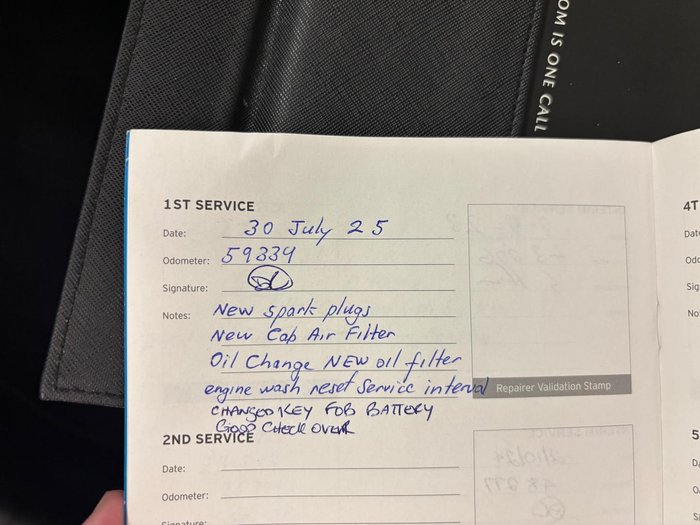 OM IS ONE CALL
1ST SERVICE
Date: 30 July 25
Odometer: 59334
Signature:
Notes: New spark plugs
New Cab Air Filter
Oil Change NEW oil filter
engine wash reset service interval
CHANGED KEY FOB BATTERY
GOOD CHECK OVER
Repairer Validation Stamp
2ND SERVICE
Date:
Odometer:
Signature:
4T
Date
Odo
Sig
No
5
Da
O
S